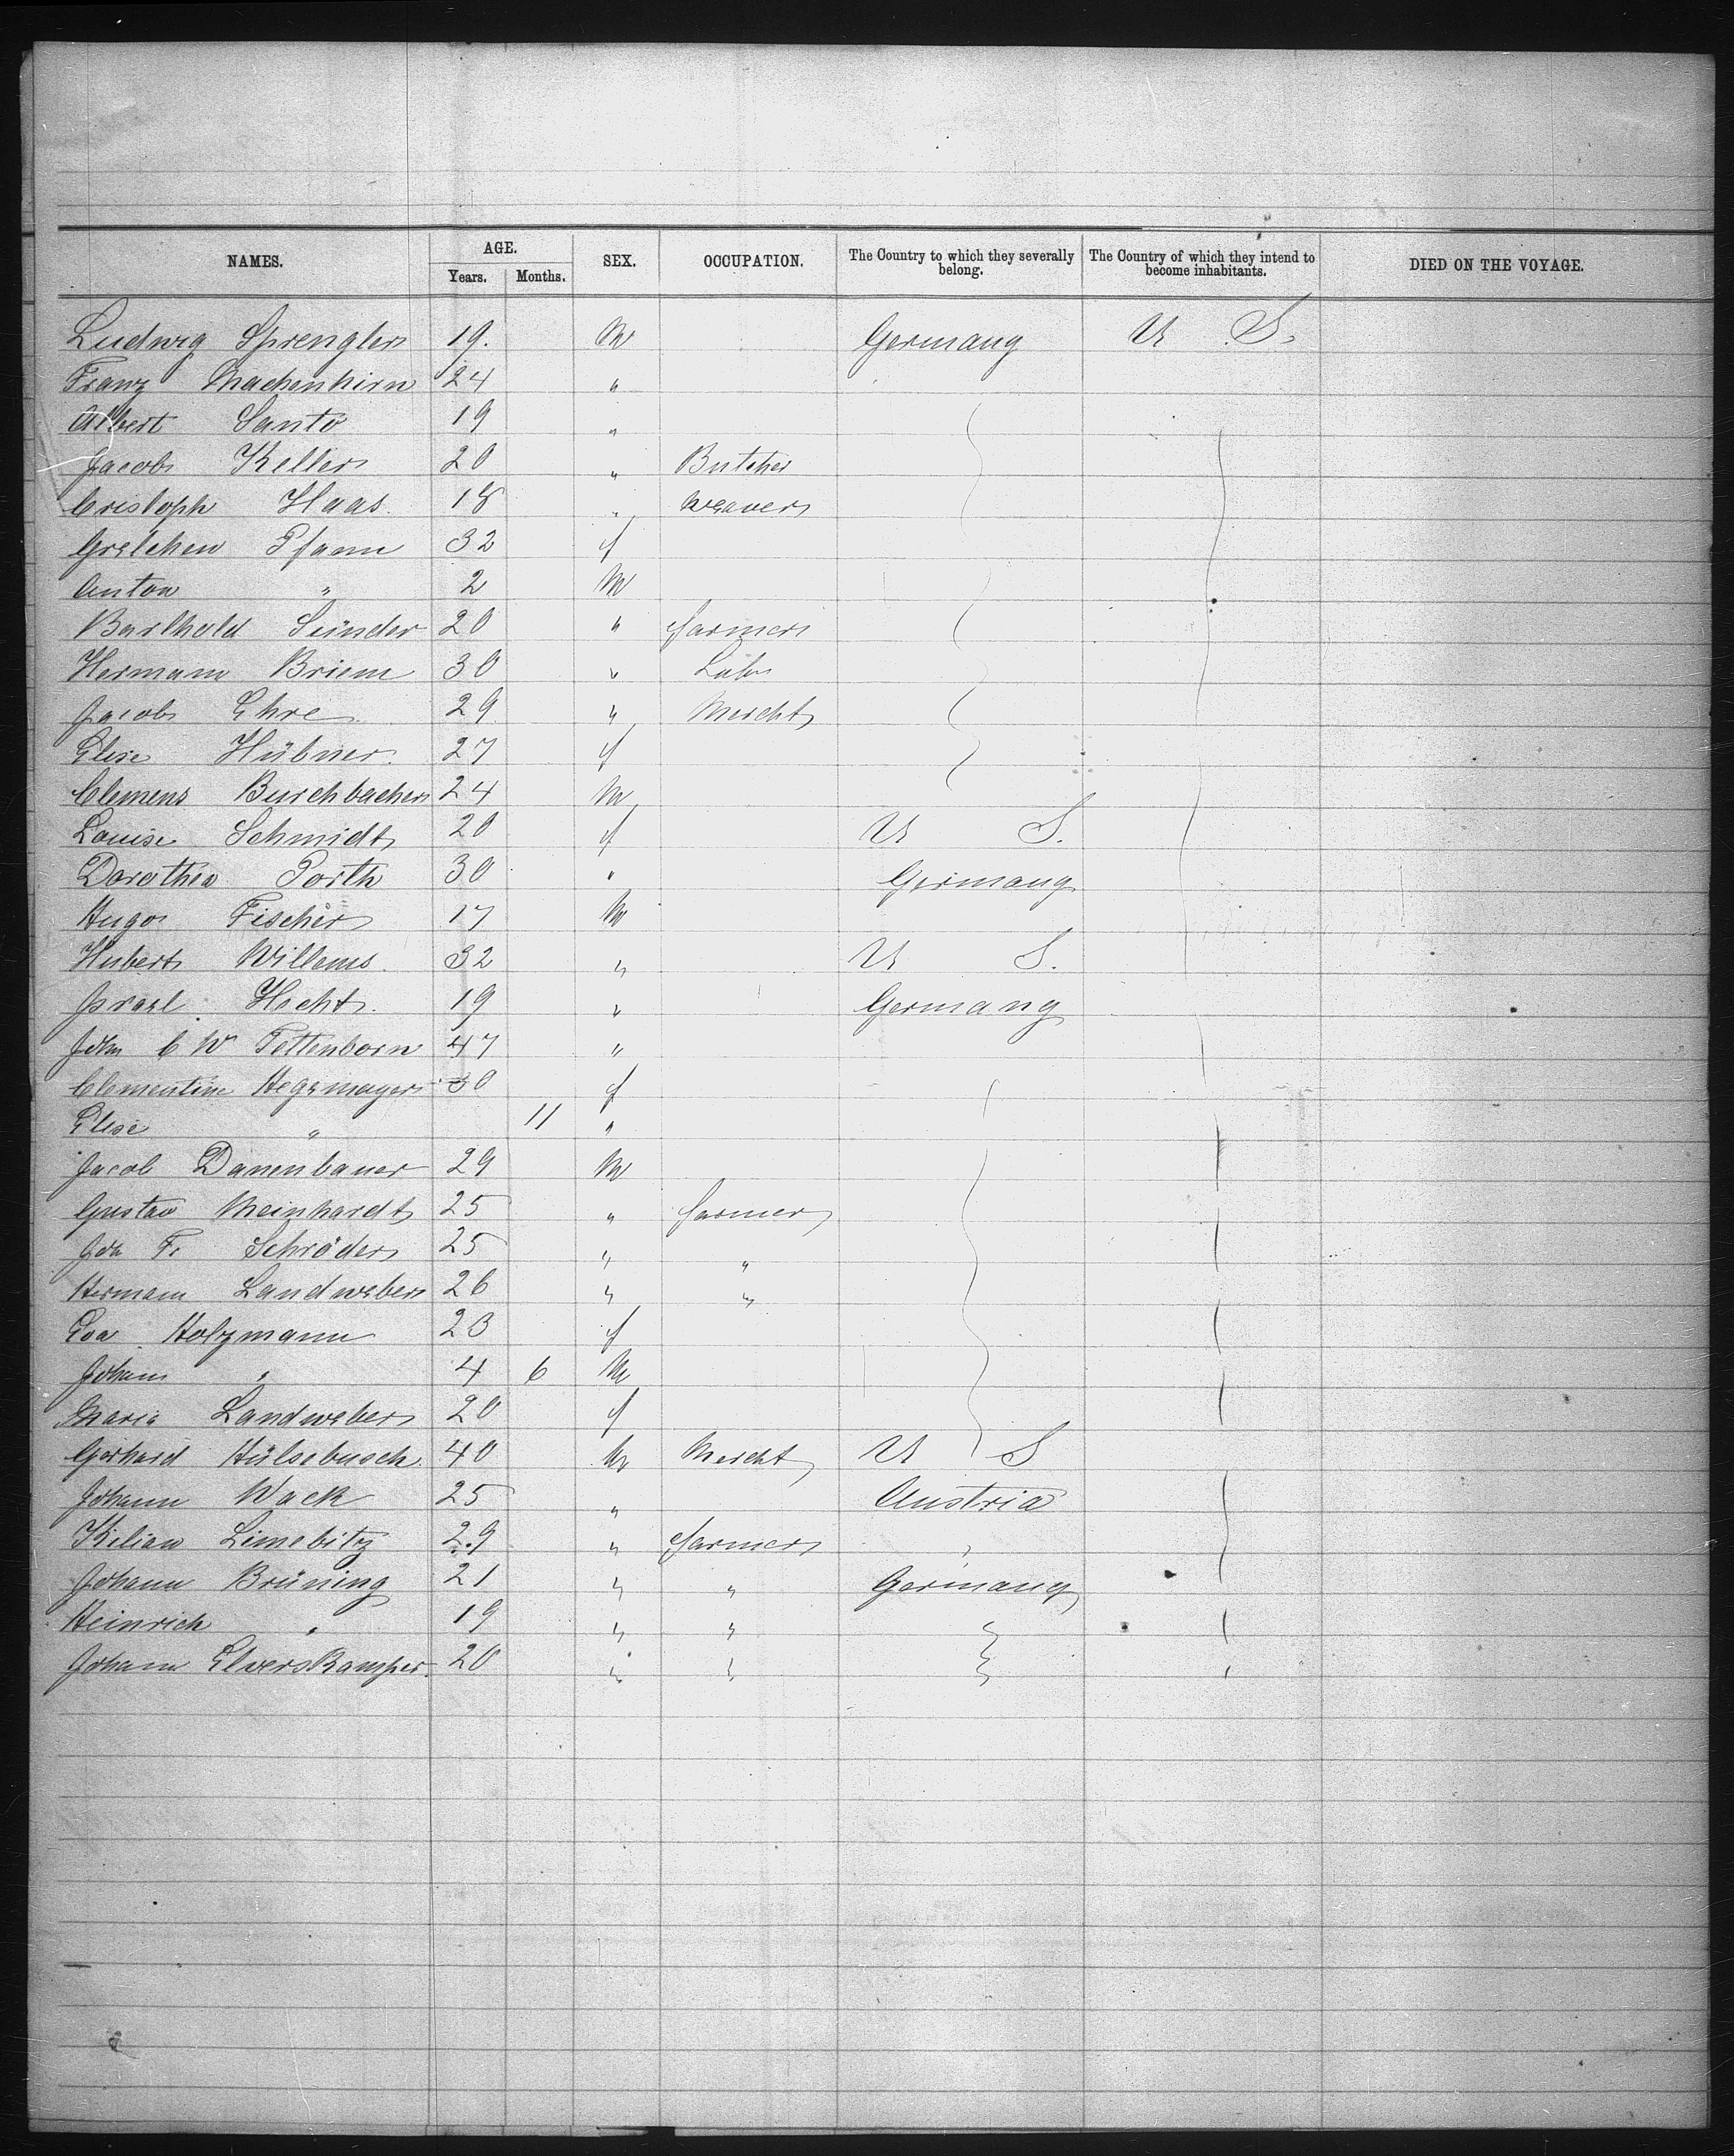 NAMES. AGE. SEX. OCCUPATION. The Country to which they severally belong. The Country of which they intend to become inhabitants. DIED ON THE VOYAGE.
Years. Months.
Ludwig Sprengler 19. M Germany U. S.
Franz Machenhirn 24 "
Albert Santo 19 "
Jacob Keller 20 " Butcher
Cristoph Haas 18 " Weaver
Gretchen Pfann 32 f
Anton " 2 M
Barthold Sünder 20 " farmer
Hermann Briem 30 " Labr
Jacob Ehre 29 " Mercht
Elise Hübner 27 f
Clemens Burchbacher 24 M
Louise Schmidt 20 f U S.
Dorothea Porth 30 " Germany
Hugo Fischer 17 M
Hubert Willems 32 " U S.
Israel Hecht 19 " Germany
John C W Tettenborn 47 "
Clementine Hegemayer 30 f
Elise " 11 "
Jacob Danenbauer 29 M
Gustav Meinhardt 25 " farmer
Joh Fr Schröder 25 " "
Hermann Landweber 26 " "
Eva Holzmann 23 f
Johann " 4 6 M
Maria Landweber 20 f
Gerhard Hülsebusch 40 M Mercht U S
Johann Wack 25 " Austria
Kilian Limebitz 29 " farmer "
Johann Brüning 21 " " Germany
Heinrich " 19 " "
Johann Elverskamper 20 " "